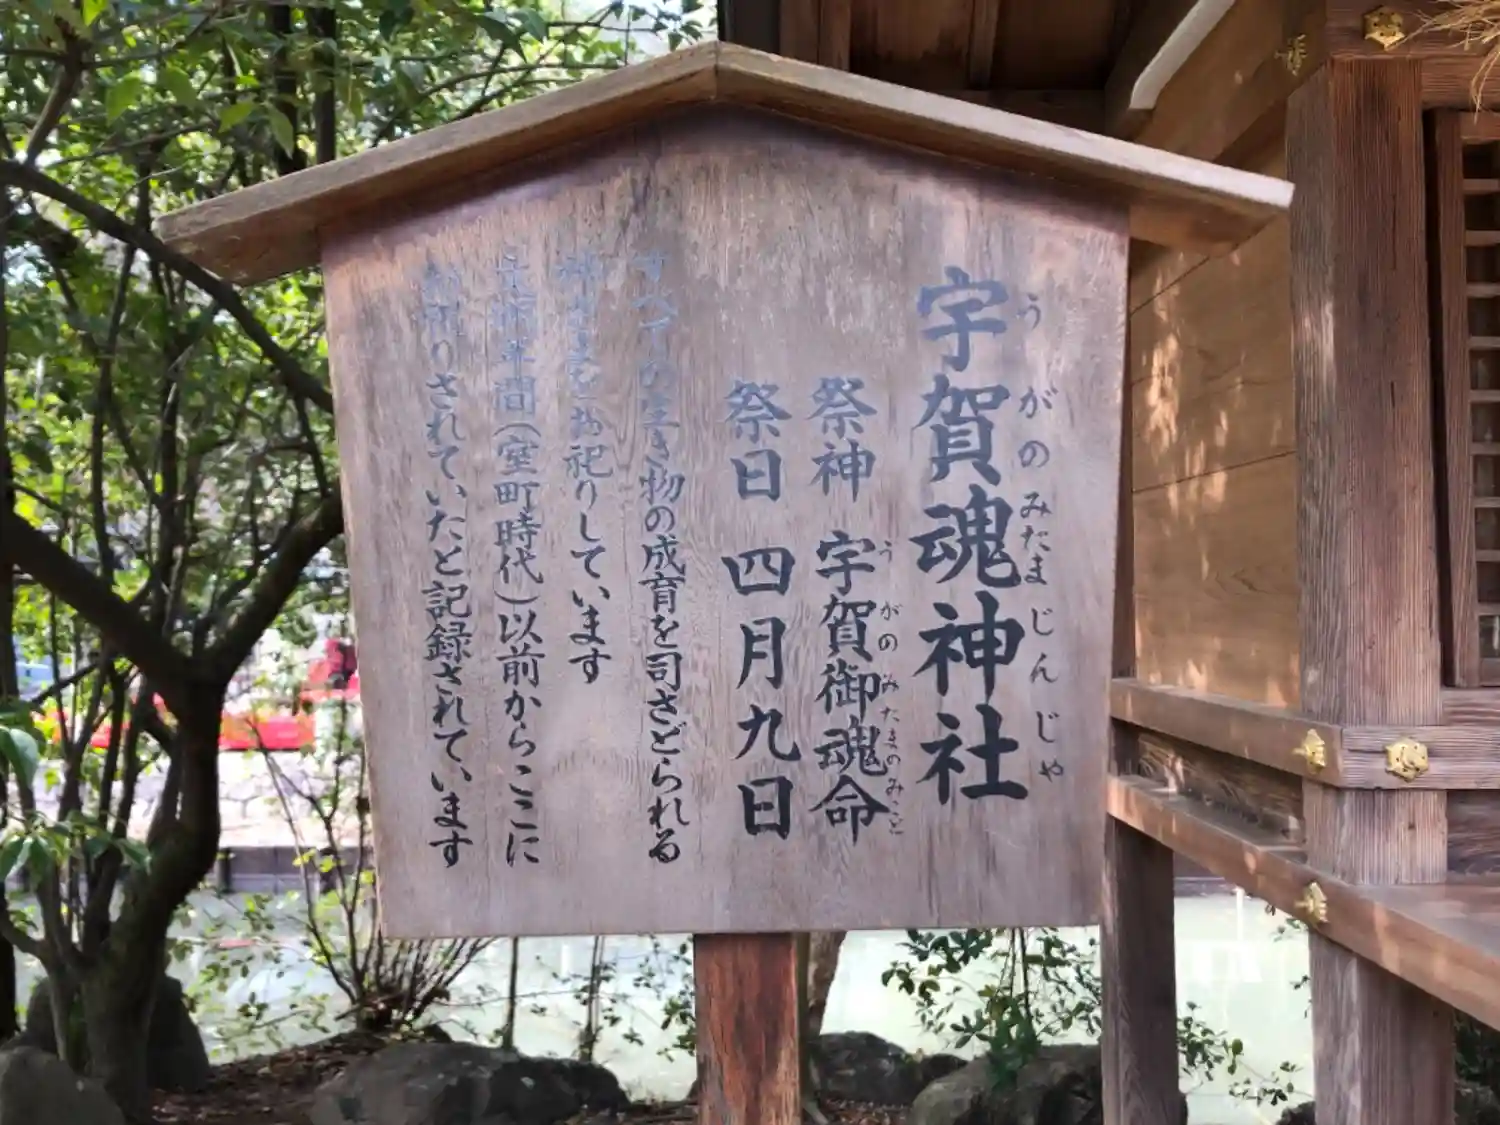 宇賀魂神社
うがのみたまじんじゃ
祭神 宇賀御魂命
うがのみたまのみこと
祭日 四月九日
すべての生き物の成育を司さどられる
神さまをお祀りしています
年間(室町時代)以前からここに
お祀りされていたと記録されています